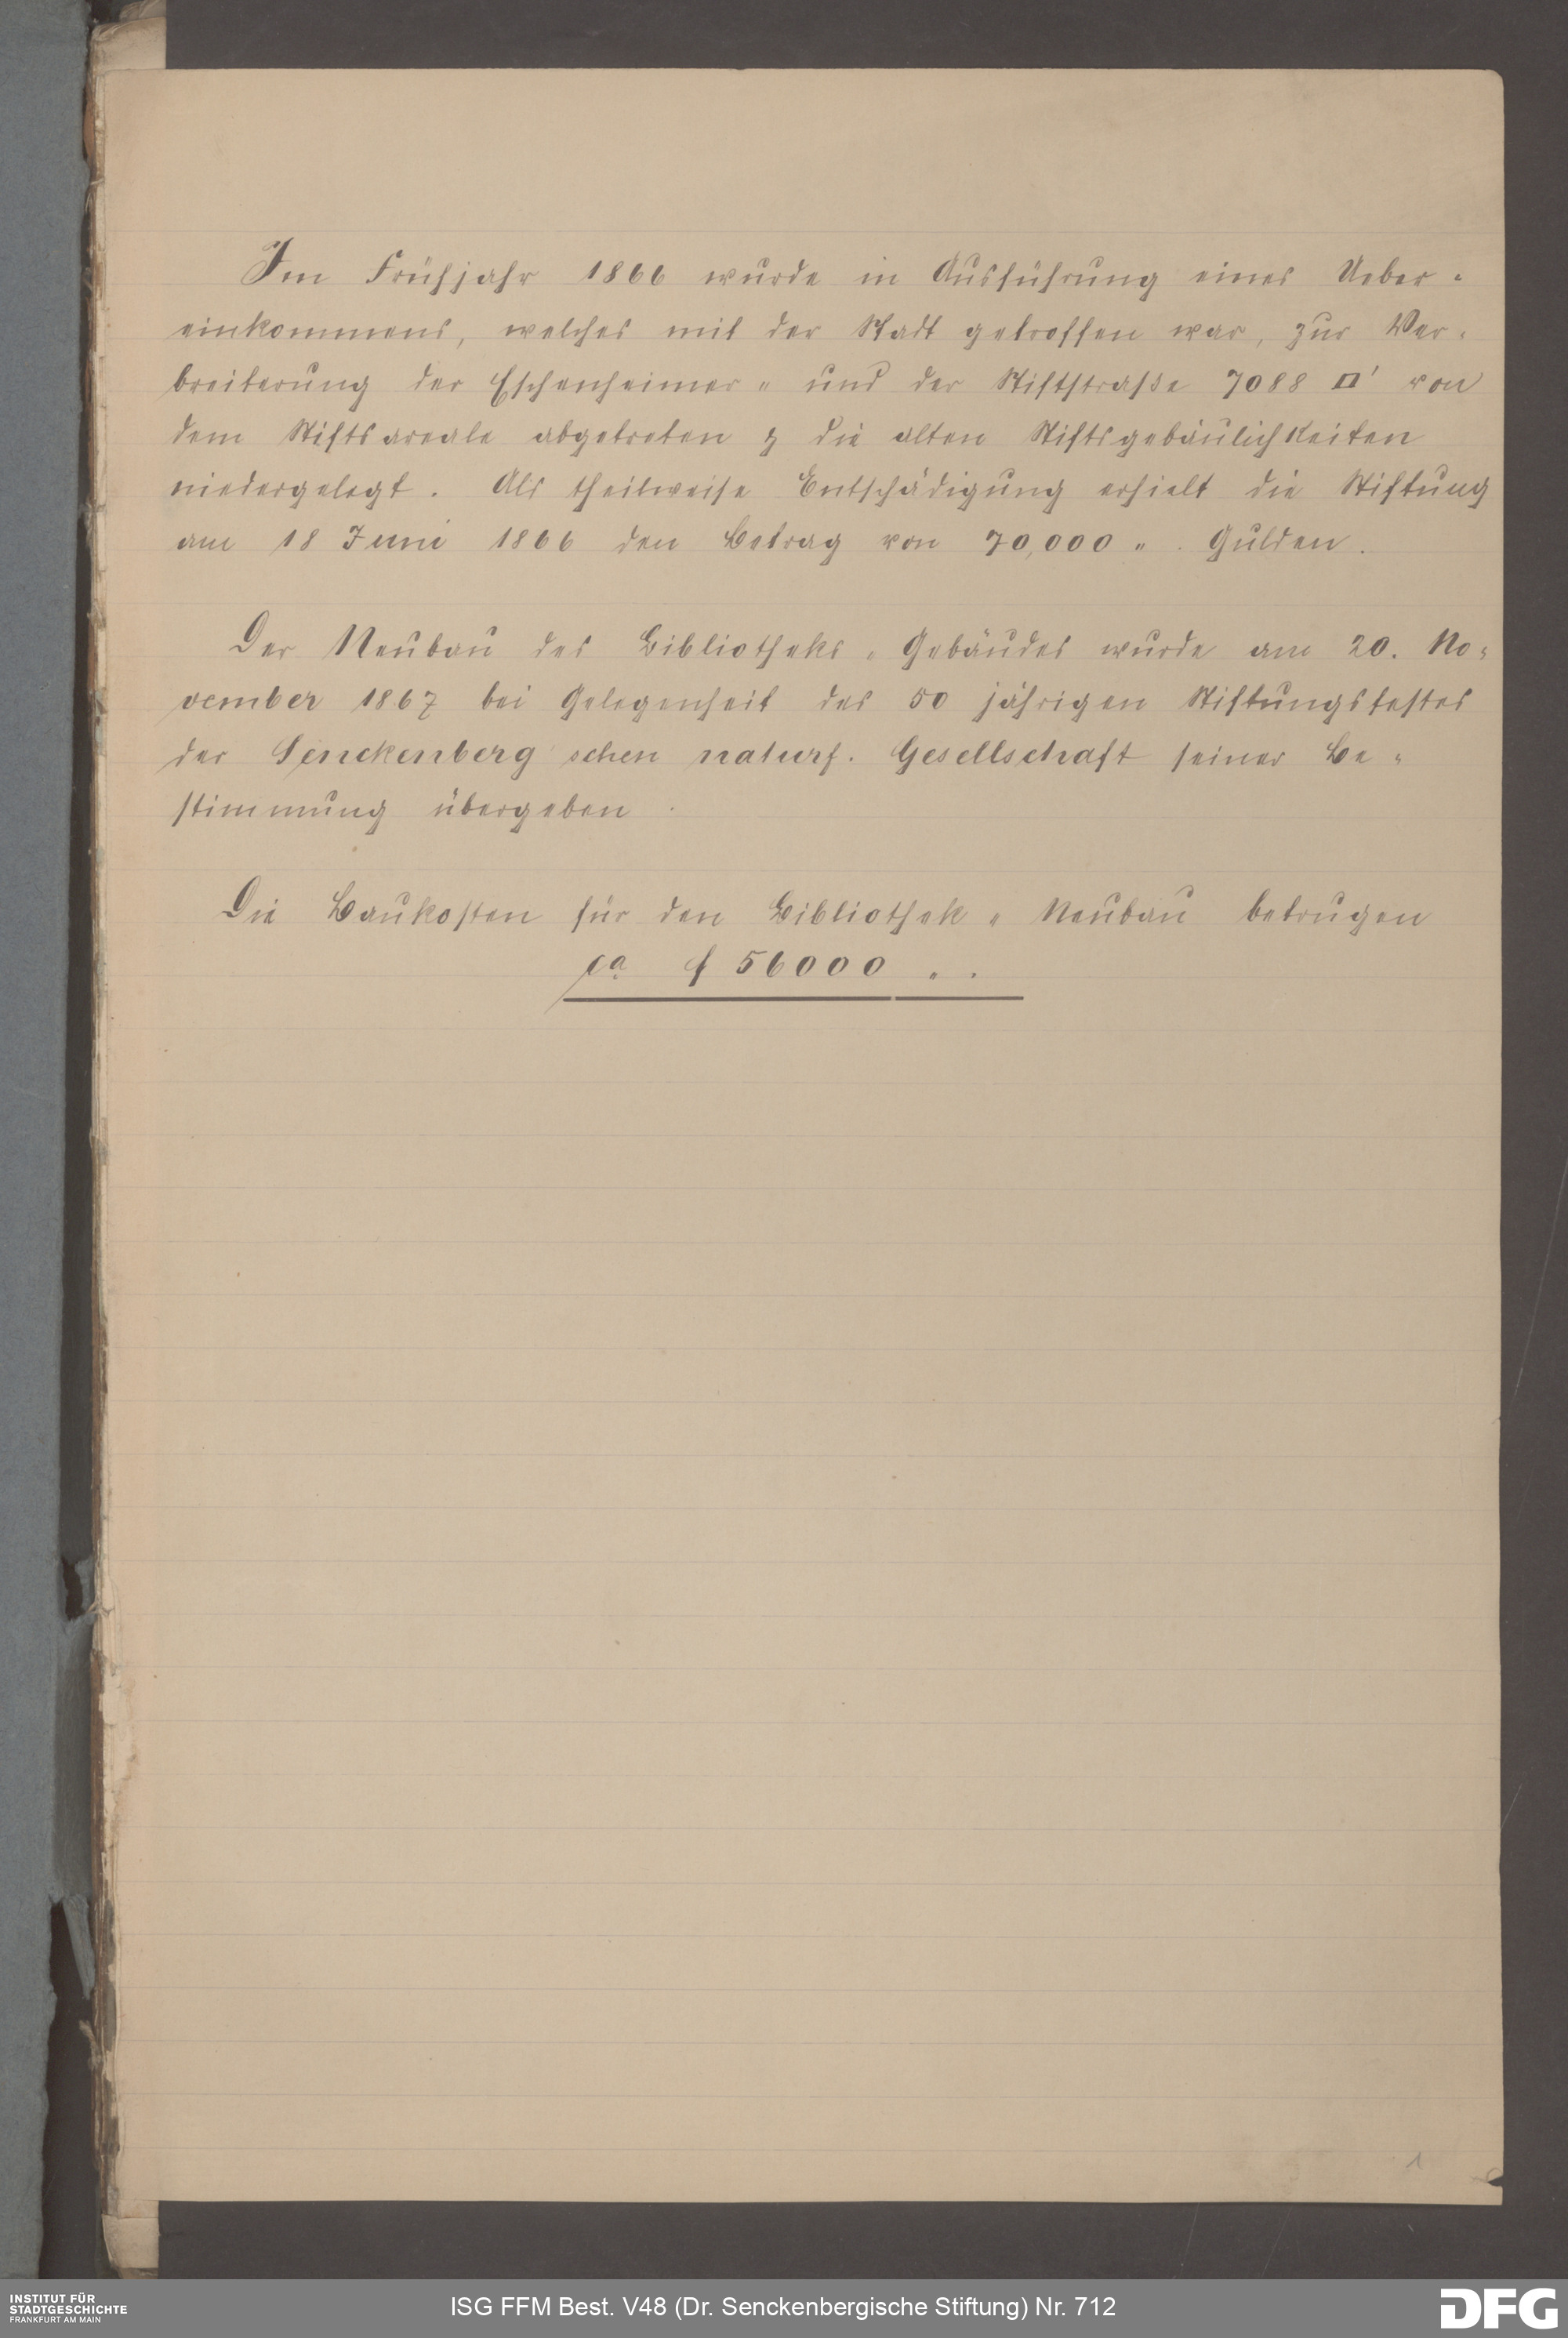 Im Frühjahr 1866 wurde in Ausführung eines Ueber=
einkommens, welches mit der Stadt getroffen war, zur Ver=
breiterung der Eschenheimer= und der Stiftstraße 7088 □' von
dem Stiftsareale abgetreten & die alten Stiftsgebäulichkeiten
niedergelegt. Als theilweise Entschädigung erhielt die Stiftung
am 18 Juni 1866 den Betrag von 70,000 „. Gulden.
Der Neubau des Bibliotheks=Gebäudes wurde am 20. No=
vember 1867 bei Gelegenheit des 50 jährigen Stiftungsfestes
der Senckenberg'schen naturf. Gesellschaft seiner Be=
stimmung übergeben.
Die Baukosten für den Bibliothek=Neubau betrugen
ca f 56000 „.
1
INSTITUT FÜR
STADTGESCHICHTE
FRANKFURT AM MAIN
ISG FFM Best. V48 (Dr. Senckenbergische Stiftung) Nr. 712
DFG